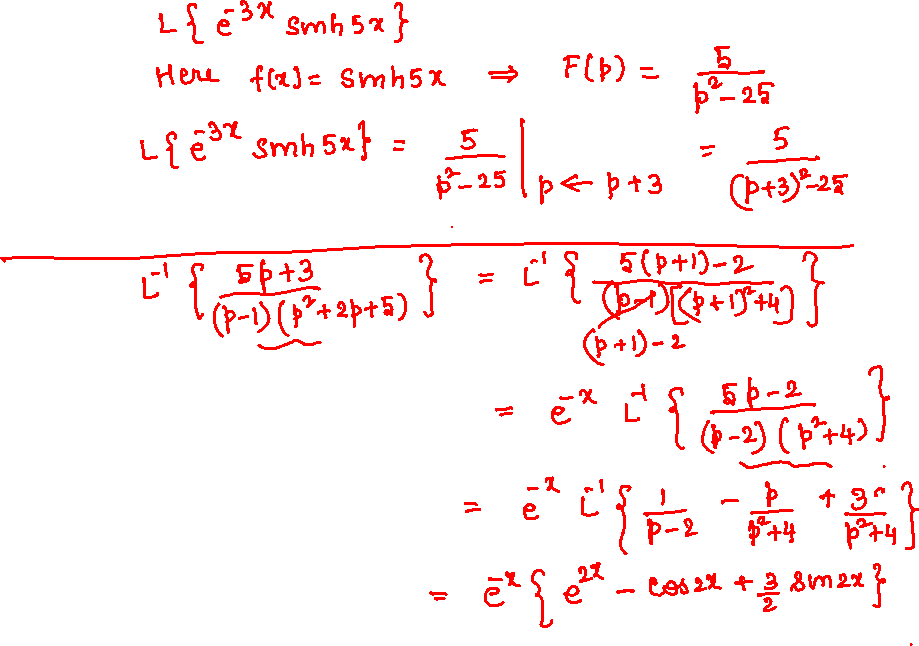 L{e^{-3x} sinh 5x}
Here f(x) = sinh5x ⇒ F(p) = 5/(p²-25)
L{e^{-3x} sinh 5x} = 5/(p²-25) | p ← p+3 = 5/((p+3)²-25)
L⁻¹{(5p+3)/((p-1)(p²+2p+5))} = L⁻¹{(5(p+1)-2)/((p-1)[(p+1)²+4])}
(p+1)-2
= e^{-x} L⁻¹{(5p-2)/((p-2)(p²+4))}
= e^{-x} L⁻¹{1/(p-2) - p/(p²+4) + 3/(p²+4)}
= e^{-x}{e^{2x} - cos2x + 3/2 sin2x}